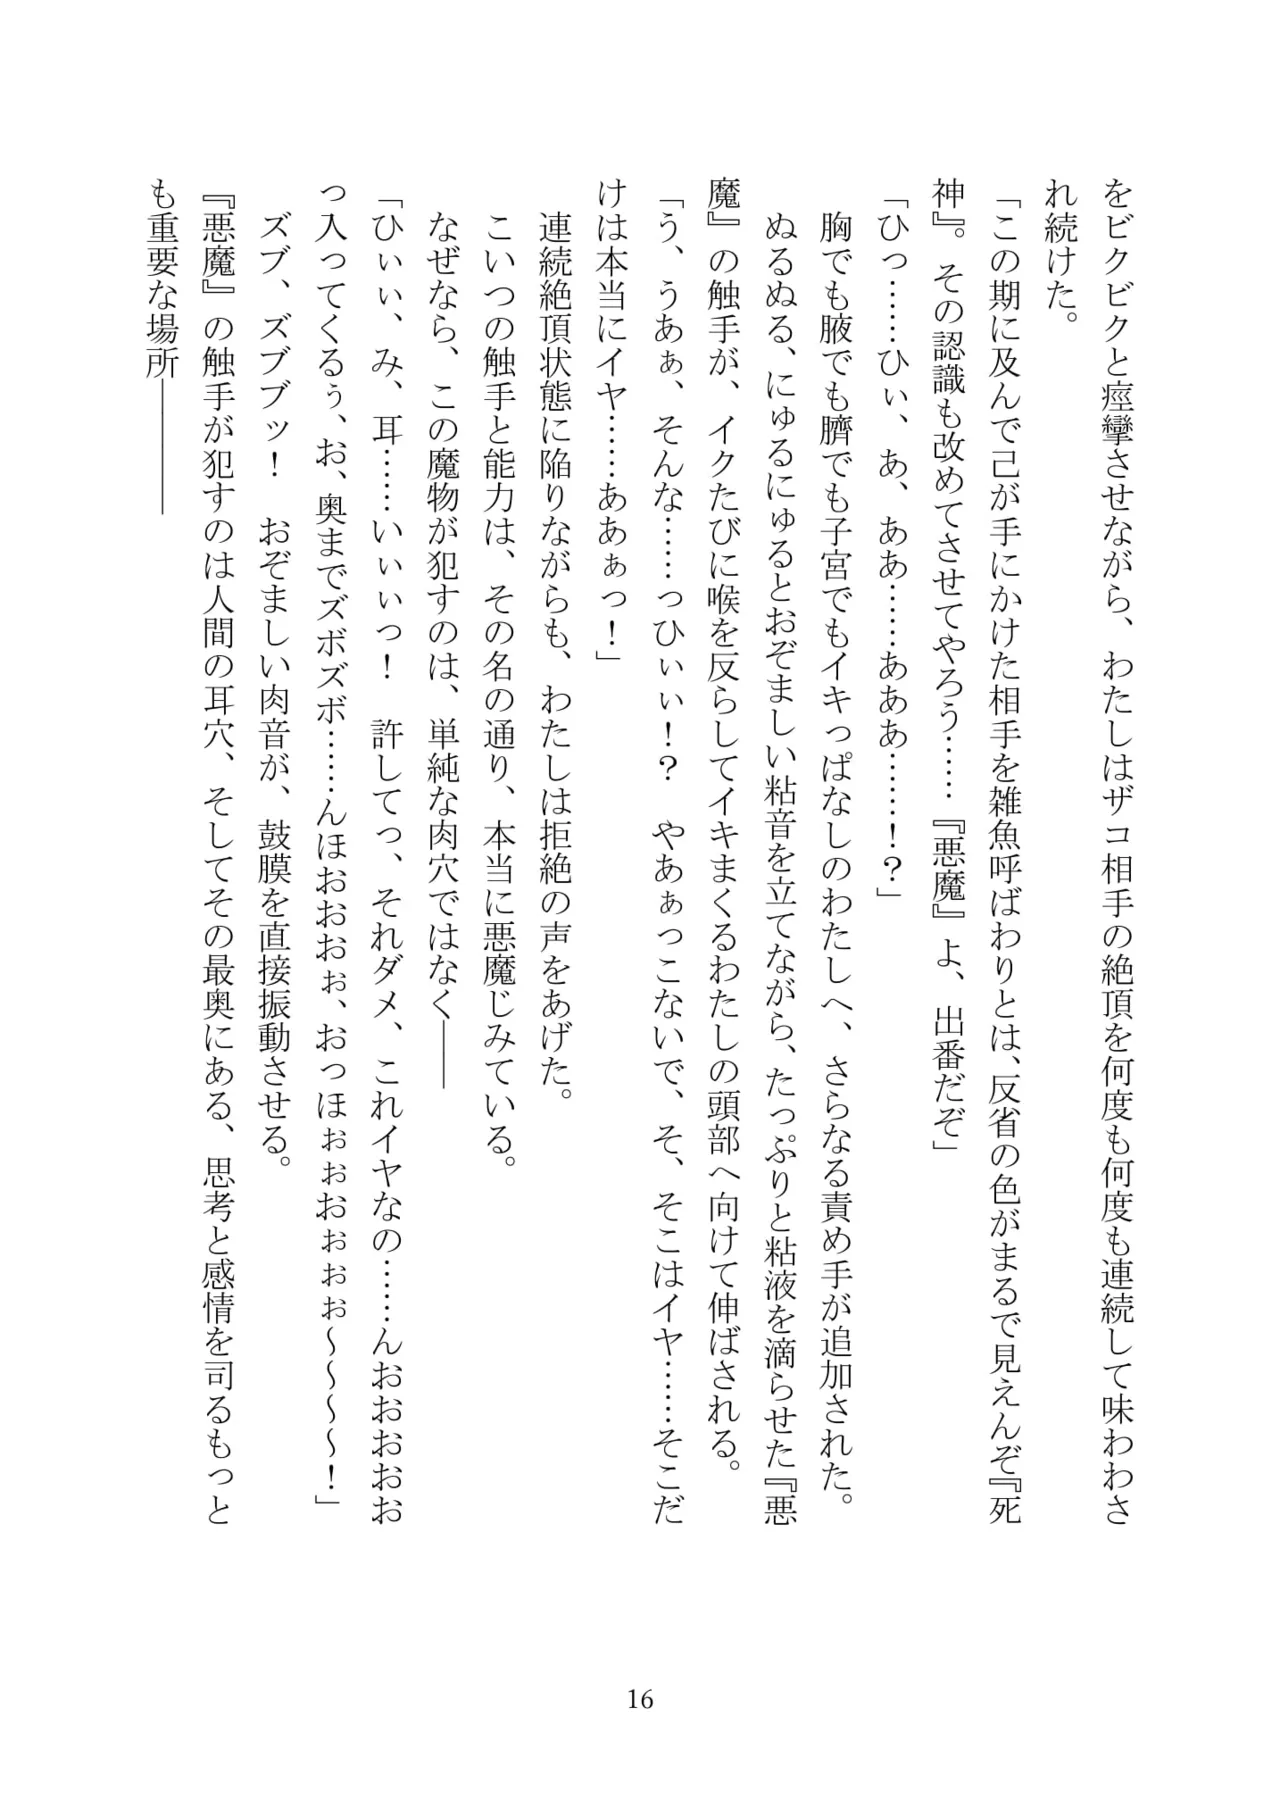 をビクビクと痙攣させながら、わたしはザコ相手の絶頂を何度も何度も連続して味わわさ
れ続けた。
「この期に及んで己が手にかけた相手を雑魚呼ばわりとは、反省の色がまるで見えんぞ『死
神』。その認識も改めてさせてやろう……『悪魔』よ、出番だぞ」
「ひっ……ひぃ、あ、ああ……あああ……！？」
胸でも腋でも臍でも子宮でもイキっぱなしのわたしへ、さらなる責め手が追加された。
ぬるぬる、にゅるにゅるとおぞましい粘音を立てながら、たっぷりと粘液を滴らせた『悪
魔』の触手が、イクたびに喉を反らしてイキまくるわたしの頭部へ向けて伸ばされる。
「う、うあぁ、そんな……っひぃぃ！？　やあぁっこないで、そ、そこはイヤ……そこだ
けは本当にイヤ……ああぁっ！」
連続絶頂状態に陥りながらも、わたしは拒絶の声をあげた。
こいつの触手と能力は、その名の通り、本当に悪魔じみている。
なぜなら、この魔物が犯すのは、単純な肉穴ではなく――
「ひぃぃ、み、耳……いぃぃっ！　許してっ、それダメ、これイヤなの……んおおおおお
っ入ってくるぅ、お、奥までズボズボ……んほおおおぉ、おっほぉぉおぉぉぉ～～～～！」
ズブ、ズブブッ！　おぞましい肉音が、鼓膜を直接振動させる。
『悪魔』の触手が犯すのは人間の耳穴、そしてその最奥にある、思考と感情を司るもっと
も重要な場所――――
16